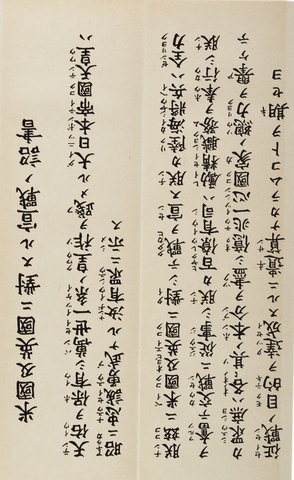 米國及英國ニ對スル宣戰ノ詔書
天佑ヲ保有シ萬世一系ノ皇祚ヲ踐メル大日本帝國天皇ハ
昭ニ忠誠勇武ナル汝有眾ニ示ス
朕茲ニ米國及英國ニ對シテ戰ヲ宣ス朕カ陸海將兵ハ全力
ヲ奮テ交戰ニ從事シ朕カ百僚有司ハ勵精職務ヲ奉行シ朕
カ眾庶ハ各〻其ノ本分ヲ盡シ億兆一心國家ノ總力ヲ擧ケテ
征戰ノ目的ヲ達成スルニ遺算ナカラムコトヲ期セヨ